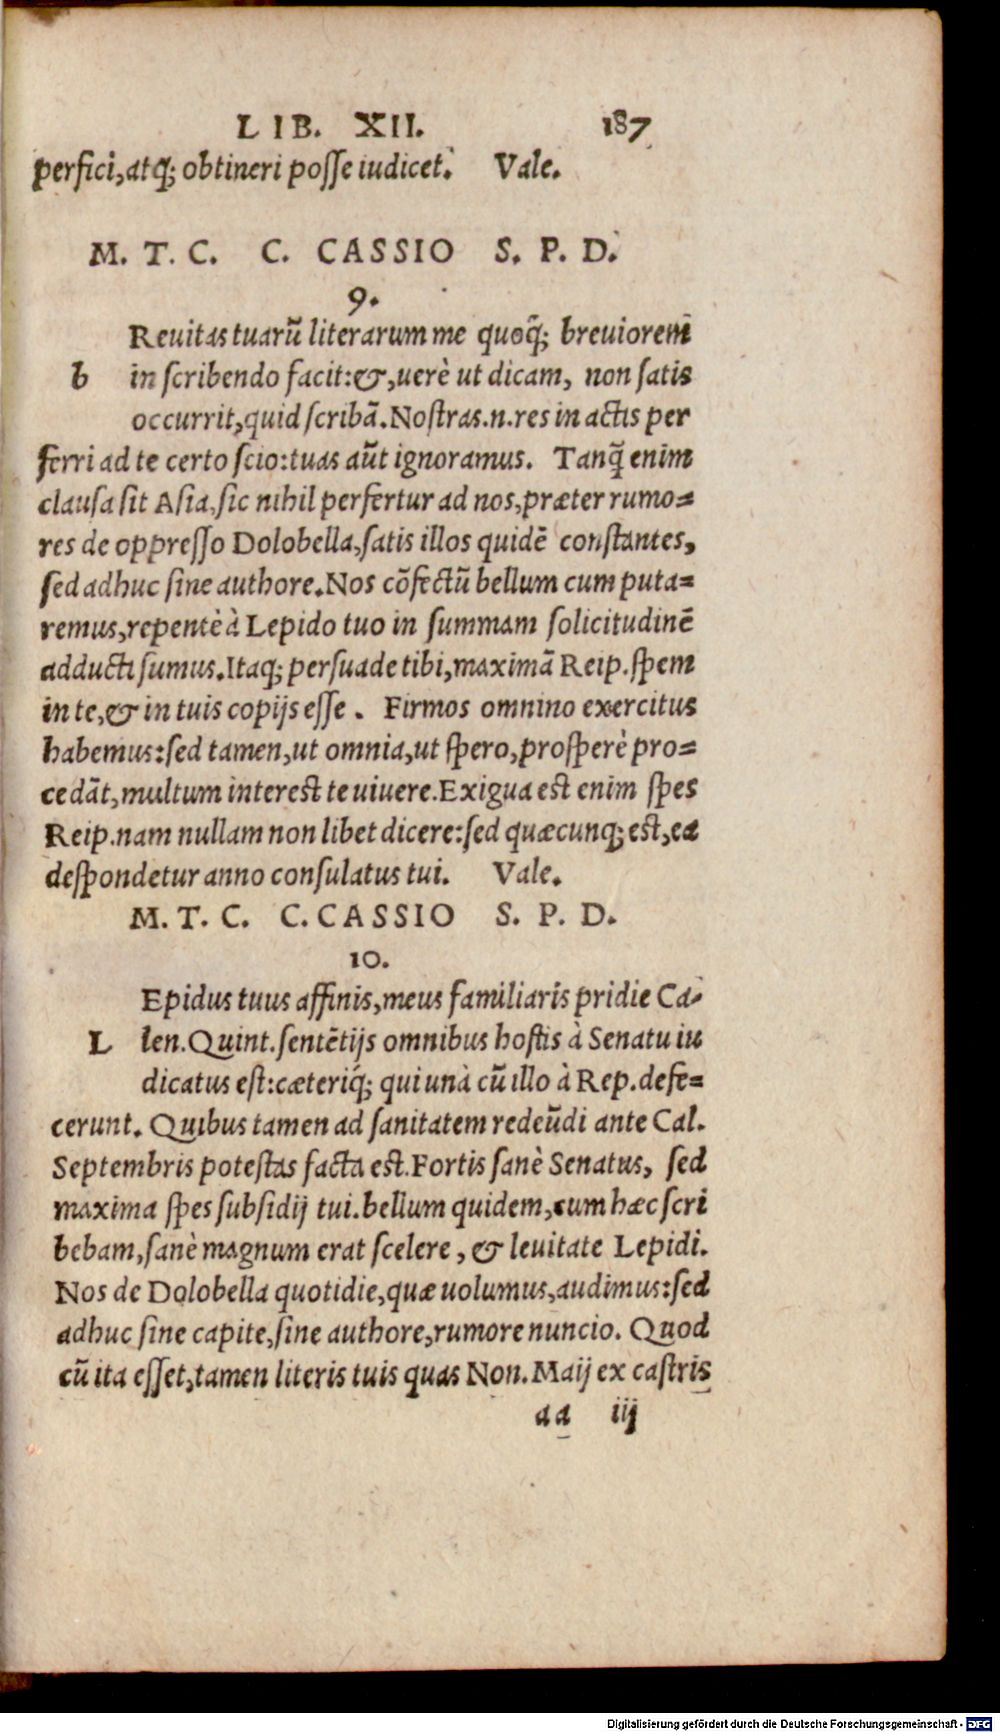 LIB. XII. 187
perfici, atq; obtineri posse iudicet. Vale.
M. T. C. C. CASSIO S. P. D.
9.
Reuitas tuarū literarum me quoq̃; breuiorem
b in scribendo facit: &, uerè ut dicam, non satis
occurrit, quid scribā. Nostras .n. res in actis per
ferri ad te certo scio: tuas aūt ignoramus. Tanq̃ enim
clausa sit Asia, sic nihil perfertur ad nos, præter rumo=
res de oppresso Dolobella, satis illos quidē constantes,
sed adhuc sine authore. Nos cōfectū bellum cum puta=
remus, repentè à Lepido tuo in summam solicitudinē
adducti sumus. Itaq; persuade tibi, maximā Reip. spem
in te, & in tuis copijs esse. Firmos omnino exercitus
habemus: sed tamen, ut omnia, ut spero, prosperè pro=
cedāt, multum interest te uiuere. Exigua est enim spes
Reip. nam nullam non libet dicere: sed quæcunq; est, ea
despondetur anno consulatus tui. Vale.
M. T. C. C. CASSIO S. P. D.
10.
Epidus tuus affinis, meus familiaris pridie Ca-
L len. Quint. sentētijs omnibus hostis à Senatu iu
dicatus est: cæteriq́; qui unà cū illo à Rep. defe=
cerunt. Quibus tamen ad sanitatem redeūdi ante Cal.
Septembris potestas facta est. Fortis sanè Senatus, sed
maxima spes subsidij tui. bellum quidem, cum hæc scri
bebam, sanè magnum erat scelere, & leuitate Lepidi.
Nos de Dolobella quotidie, quæ uolumus, audimus: sed
adhuc sine capite, sine authore, rumore nuncio. Quod
cū ita esset, tamen literis tuis quas Non. Maij ex castris
aa iij
Digitalisierung gefördert durch die Deutsche Forschungsgemeinschaft - DFG